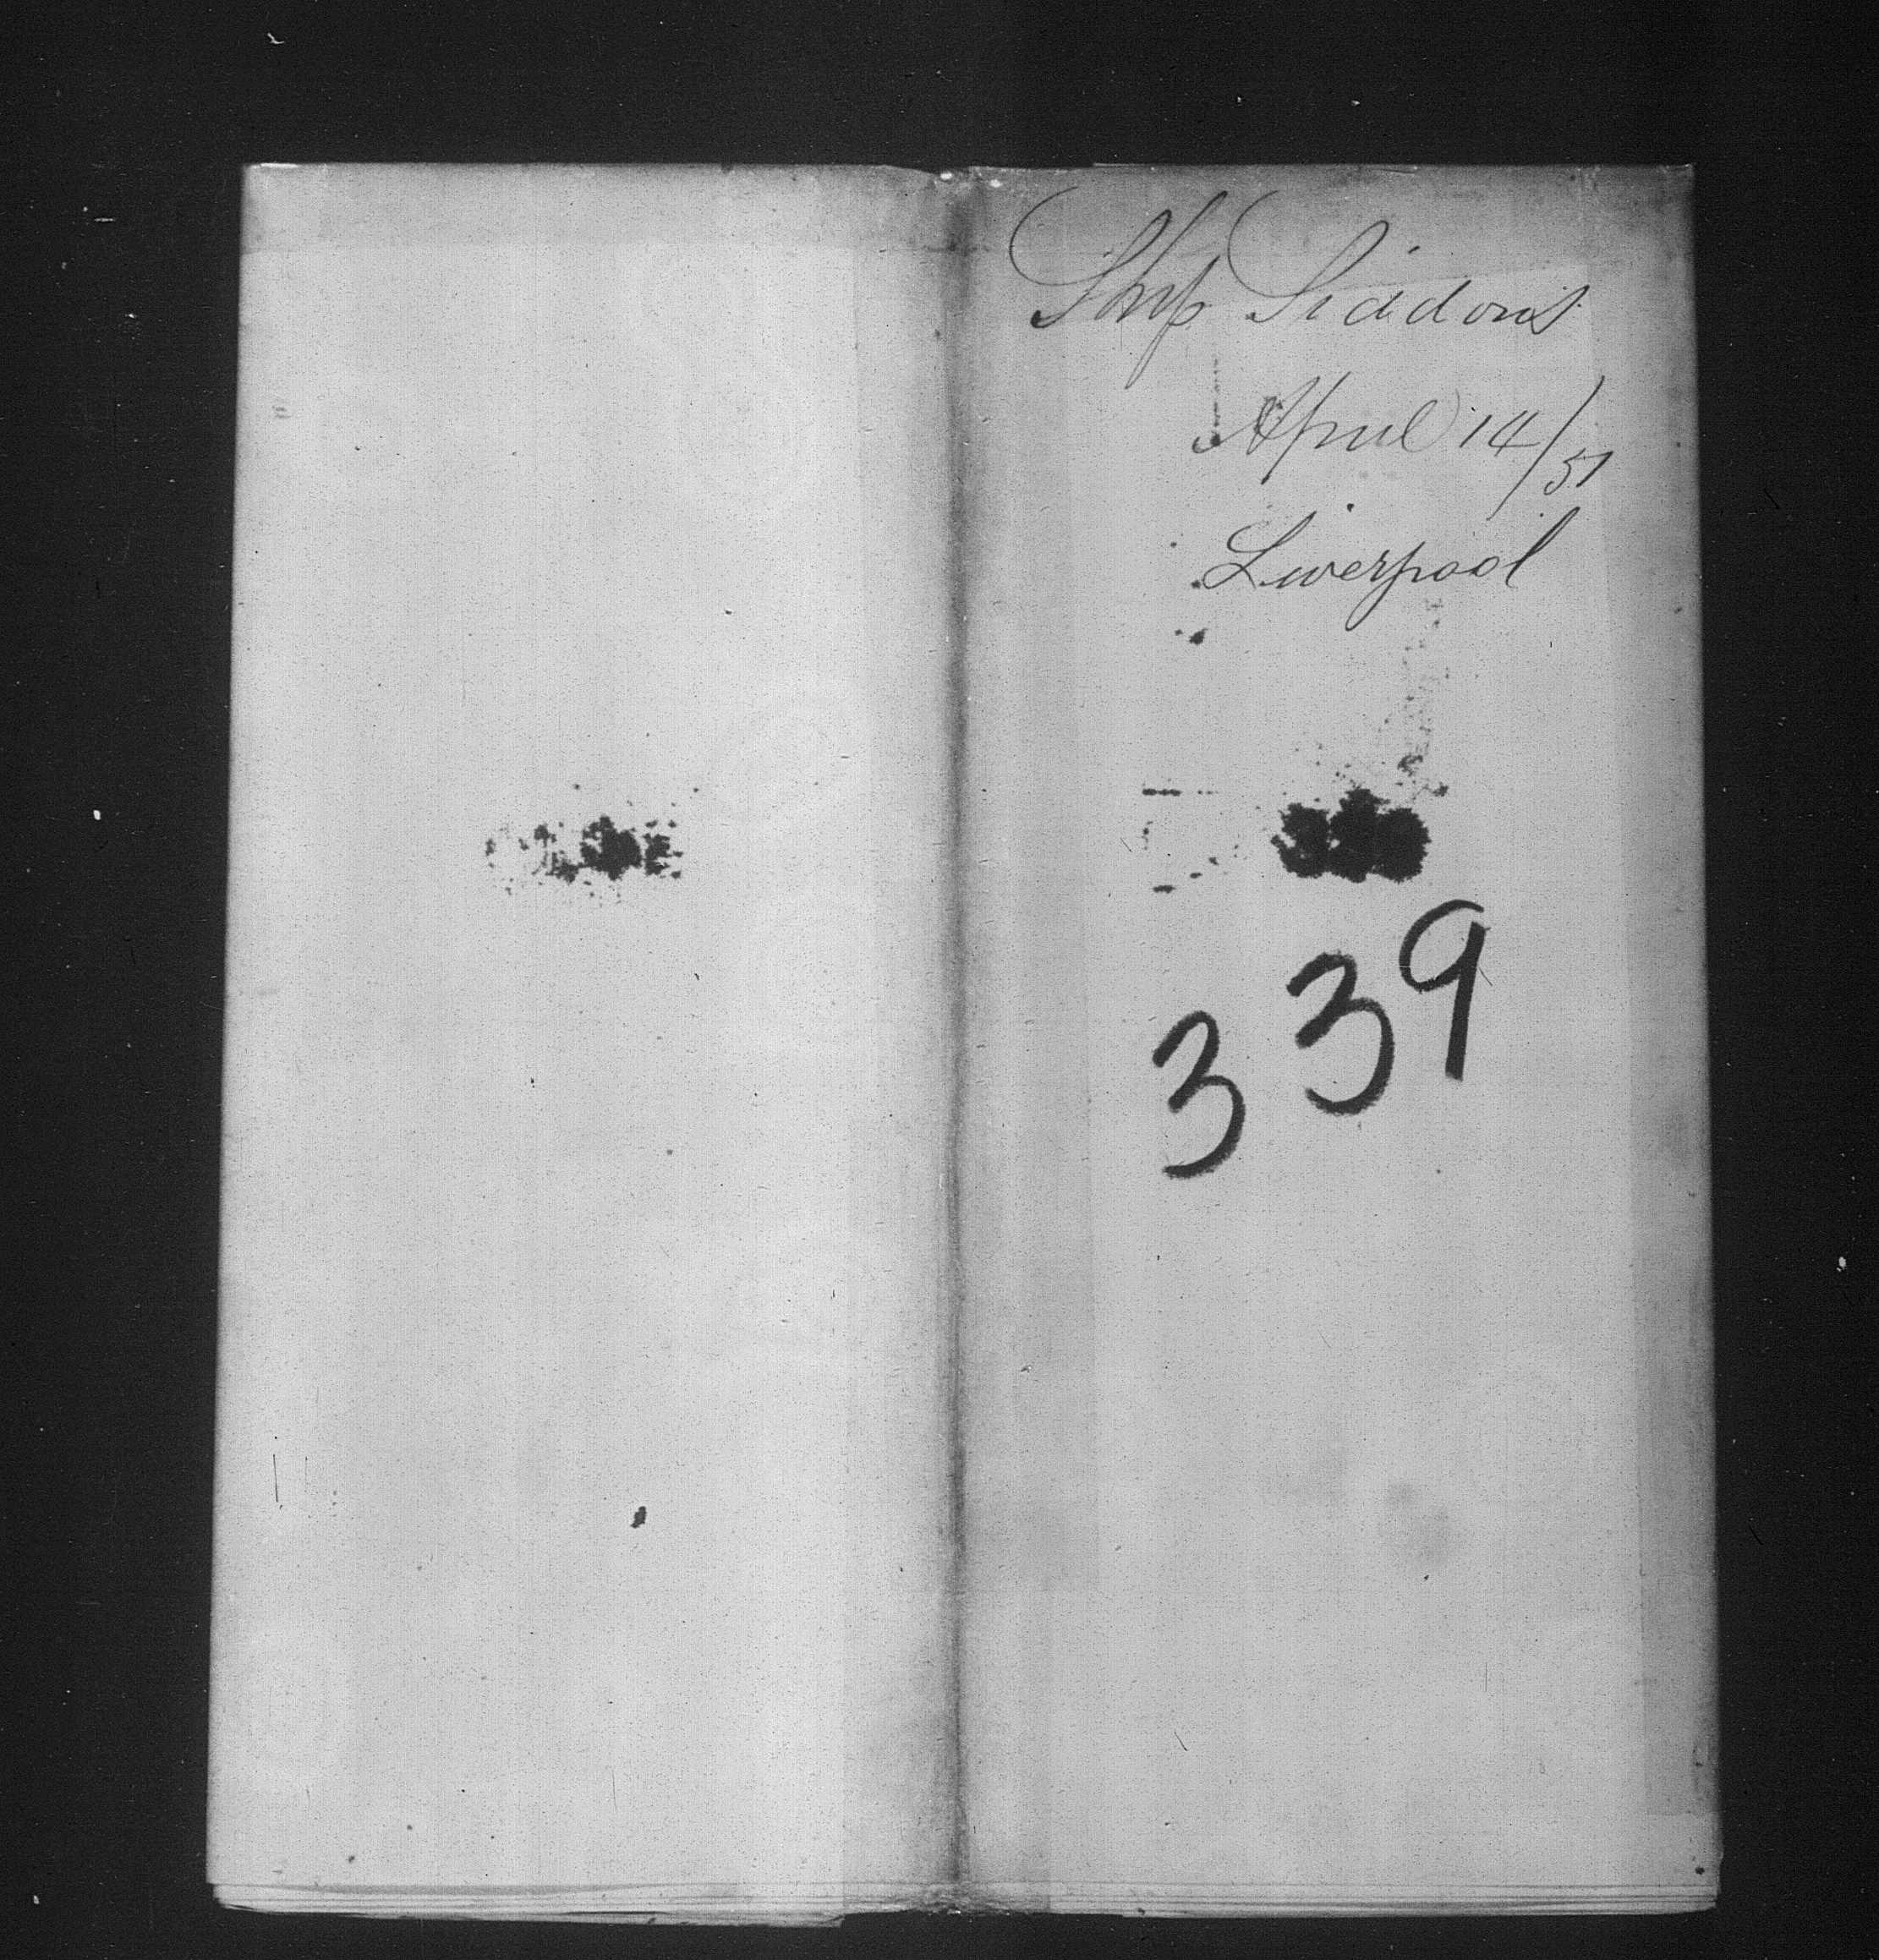 Ship Siddons
April 14/51
Liverpool
339